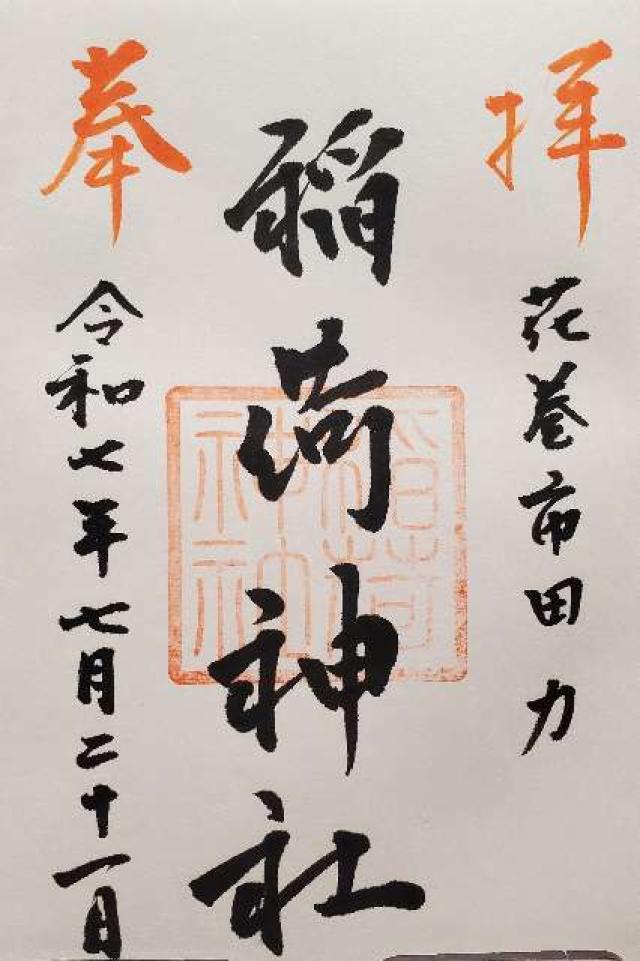 奉拝
花巻市田力
稲荷神社
稲荷神社
令和七年七月二十一日